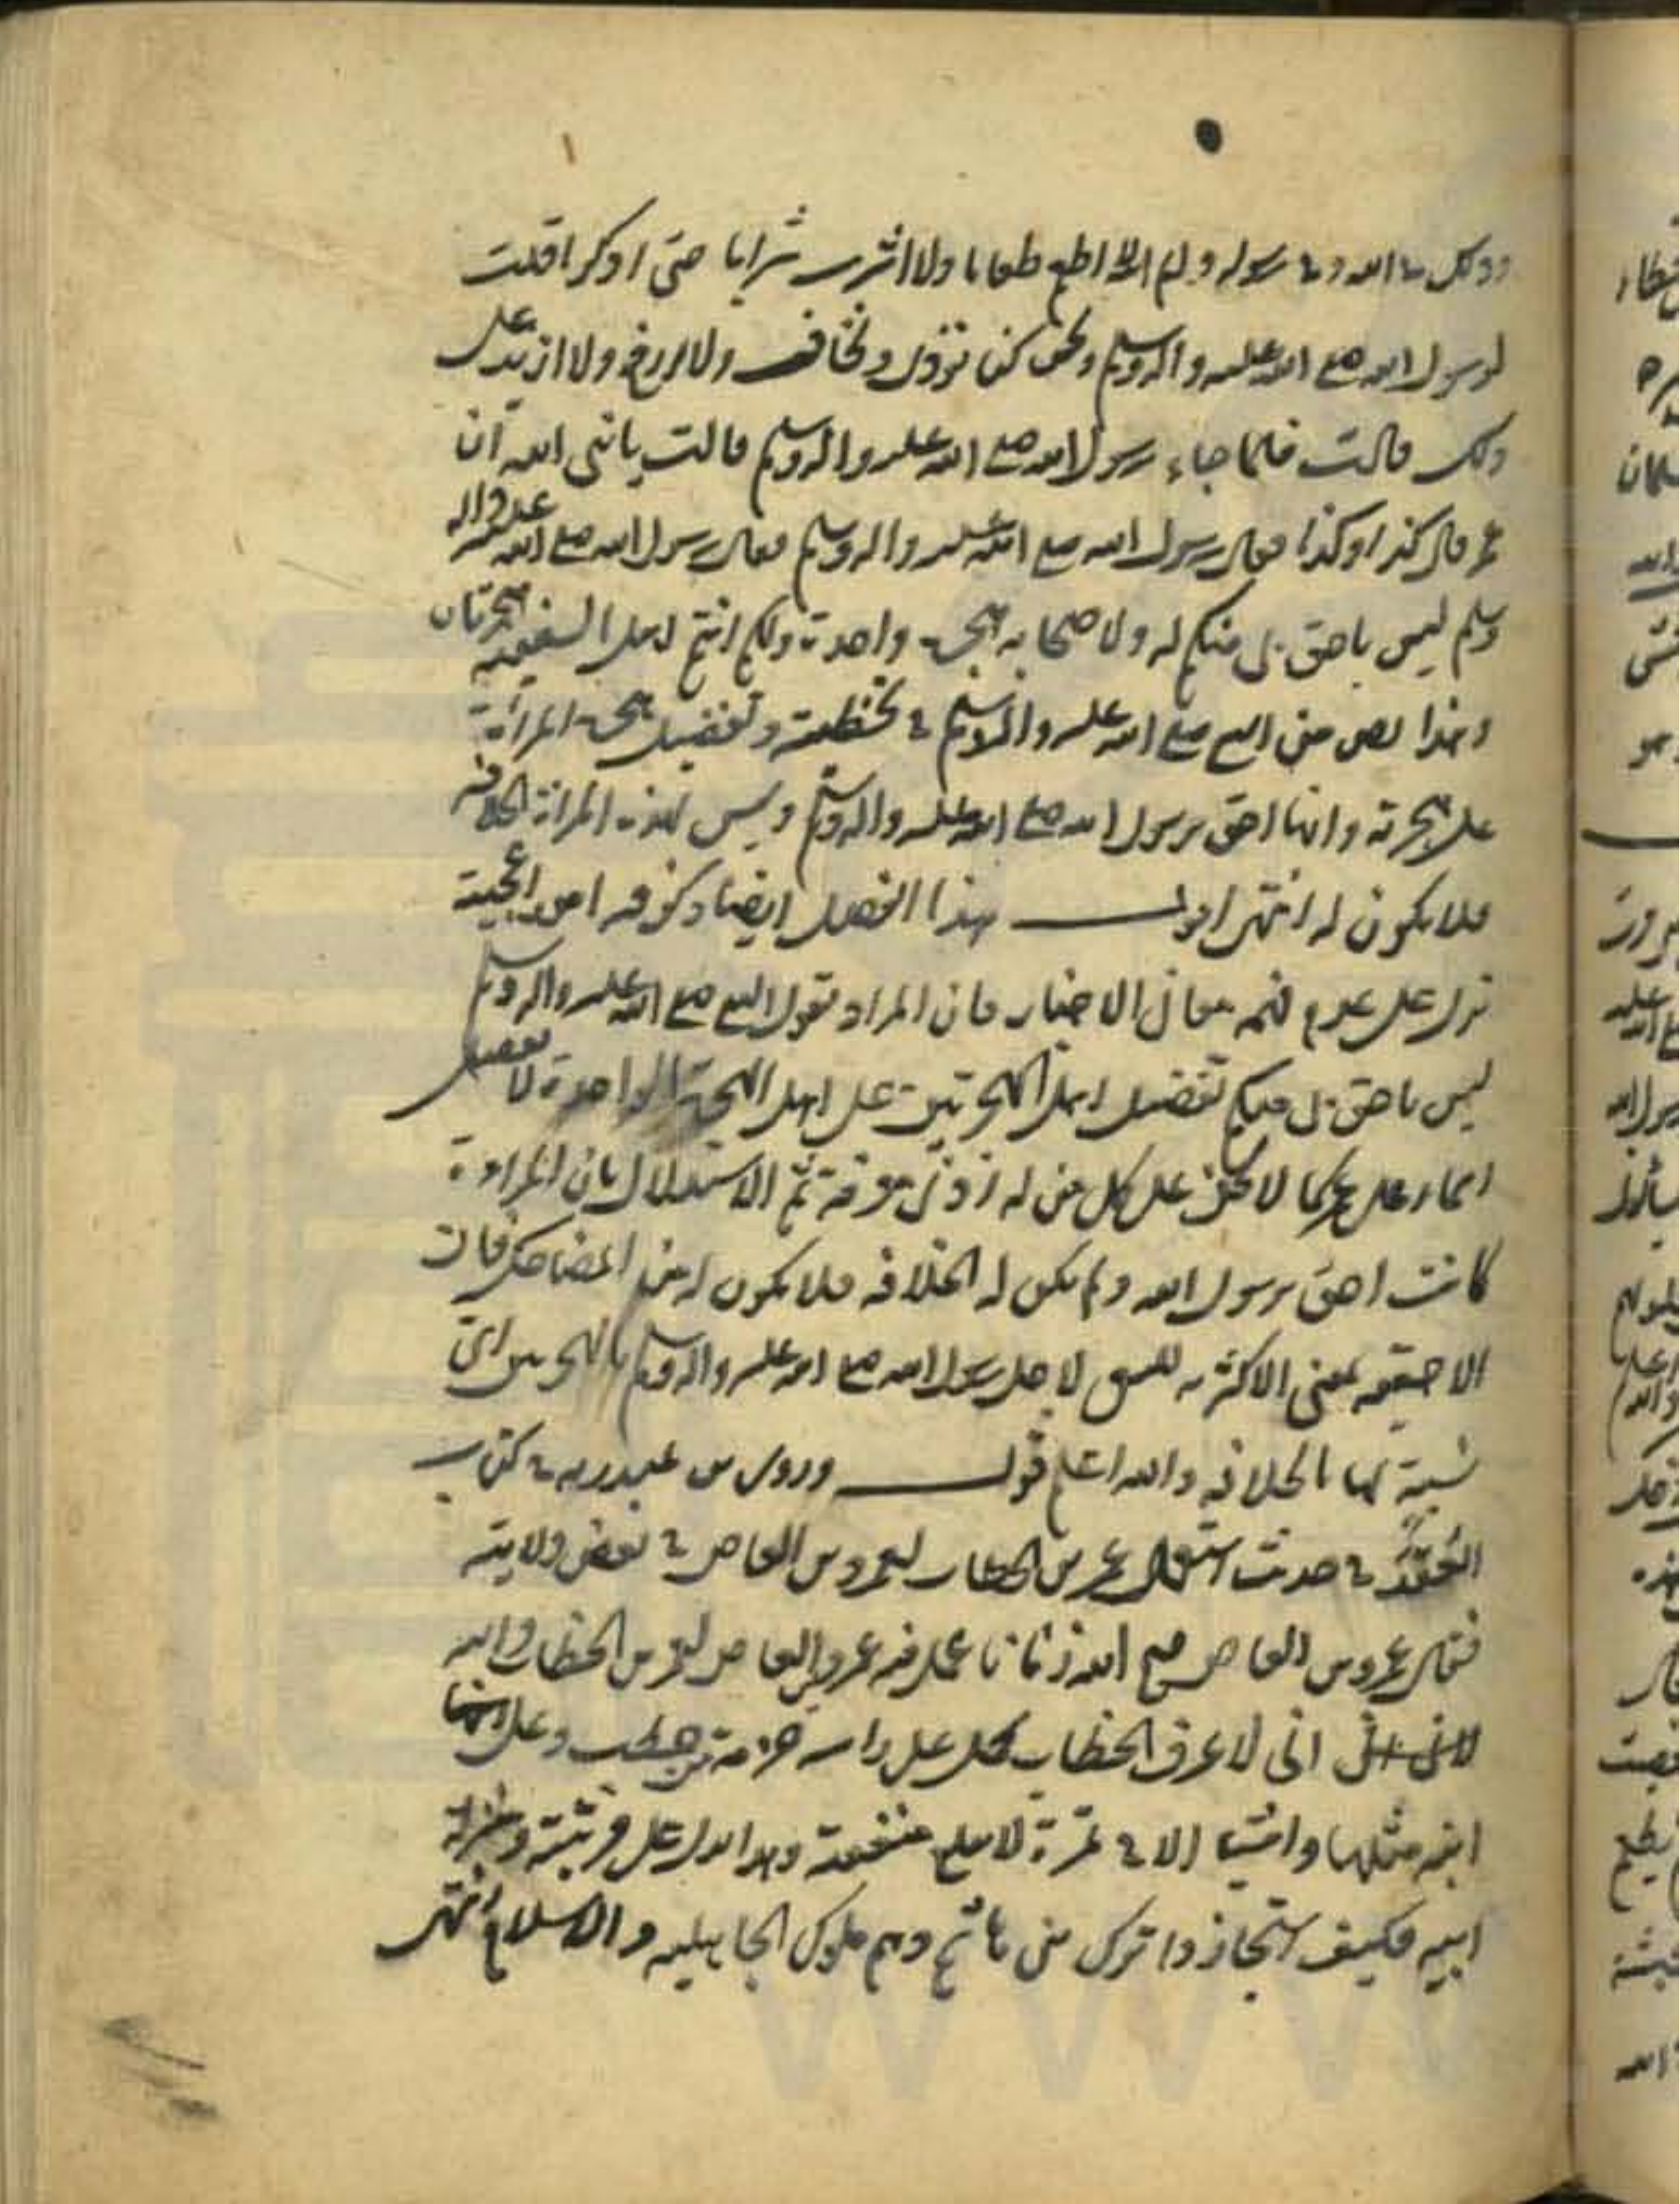 وذلك في الله وفي رسوله وايم الله لا اطعم طعاما ولا اشرب شرابا حتى اذكر ما قلت
لرسول الله صلى الله عليه واله وسلم ونحن كنا نؤذى ونخاف ولا ازيغ ولا ازيد على
ذلك قالت فلما جاء رسول الله صلى الله عليه واله وسلم قالت يا نبي الله ان
عمر قال كذا وكذا فقال رسول الله صلى الله عليه واله وسلم فقال رسول الله صلى الله عليه واله
وسلم ليس باحق بي منكم له ولاصحابه هجرة واحدة ولكم انتم اهل السفينة هجرتان
وهذا نص من النبي صلى الله عليه واله وسلم في تخطئته وتفضيل هجرة المرأة
على هجرته وانها احق برسول الله صلى الله عليه واله وسلم وليس لهذه المرأة الخلافة
فلا يكون له انتهى اقول هذا الفصل ايضا
تدل على عدم فهمه معاني الاخبار فان المراد بقول النبي صلى الله عليه واله وسلم
ليس باحق بي منكم تفضيل اهل الهجرتين على اهل الهجرة الواحدة لا تفضيل
اسماء على عمر كما لا يخفى على كل من له ادنى معرفة ثم الاستدلال بان المراءة
كانت احق برسول الله ولم يكن له الخلافة فلا يكون له من المضاحك فان
الاحقية بمعنى الاكثرية لاجل رسول الله صلى الله عليه واله وسلم بالهجرتين اي
نسبة لها بالخلافة والله اعلم قوله وروى بن عبد ربه في كتاب
العقد في حديث استعمال عمر بن الخطاب لعمرو بن العاص في بعض ولايته
فقال عمرو بن العاص قبح الله زمانا عمل فيه عمرو بن العاص لعمر بن الخطاب والله
اني لاعرف الخطاب يحمل على راسه حزمة من حطب وعلى
ابنه مثلها وما الا في نمرة لا تبلغ وهذا يدل على
ابيه فكيف استجازوا ترك بني هاشم وهم ملوك الجاهلية والاسلام انتهى